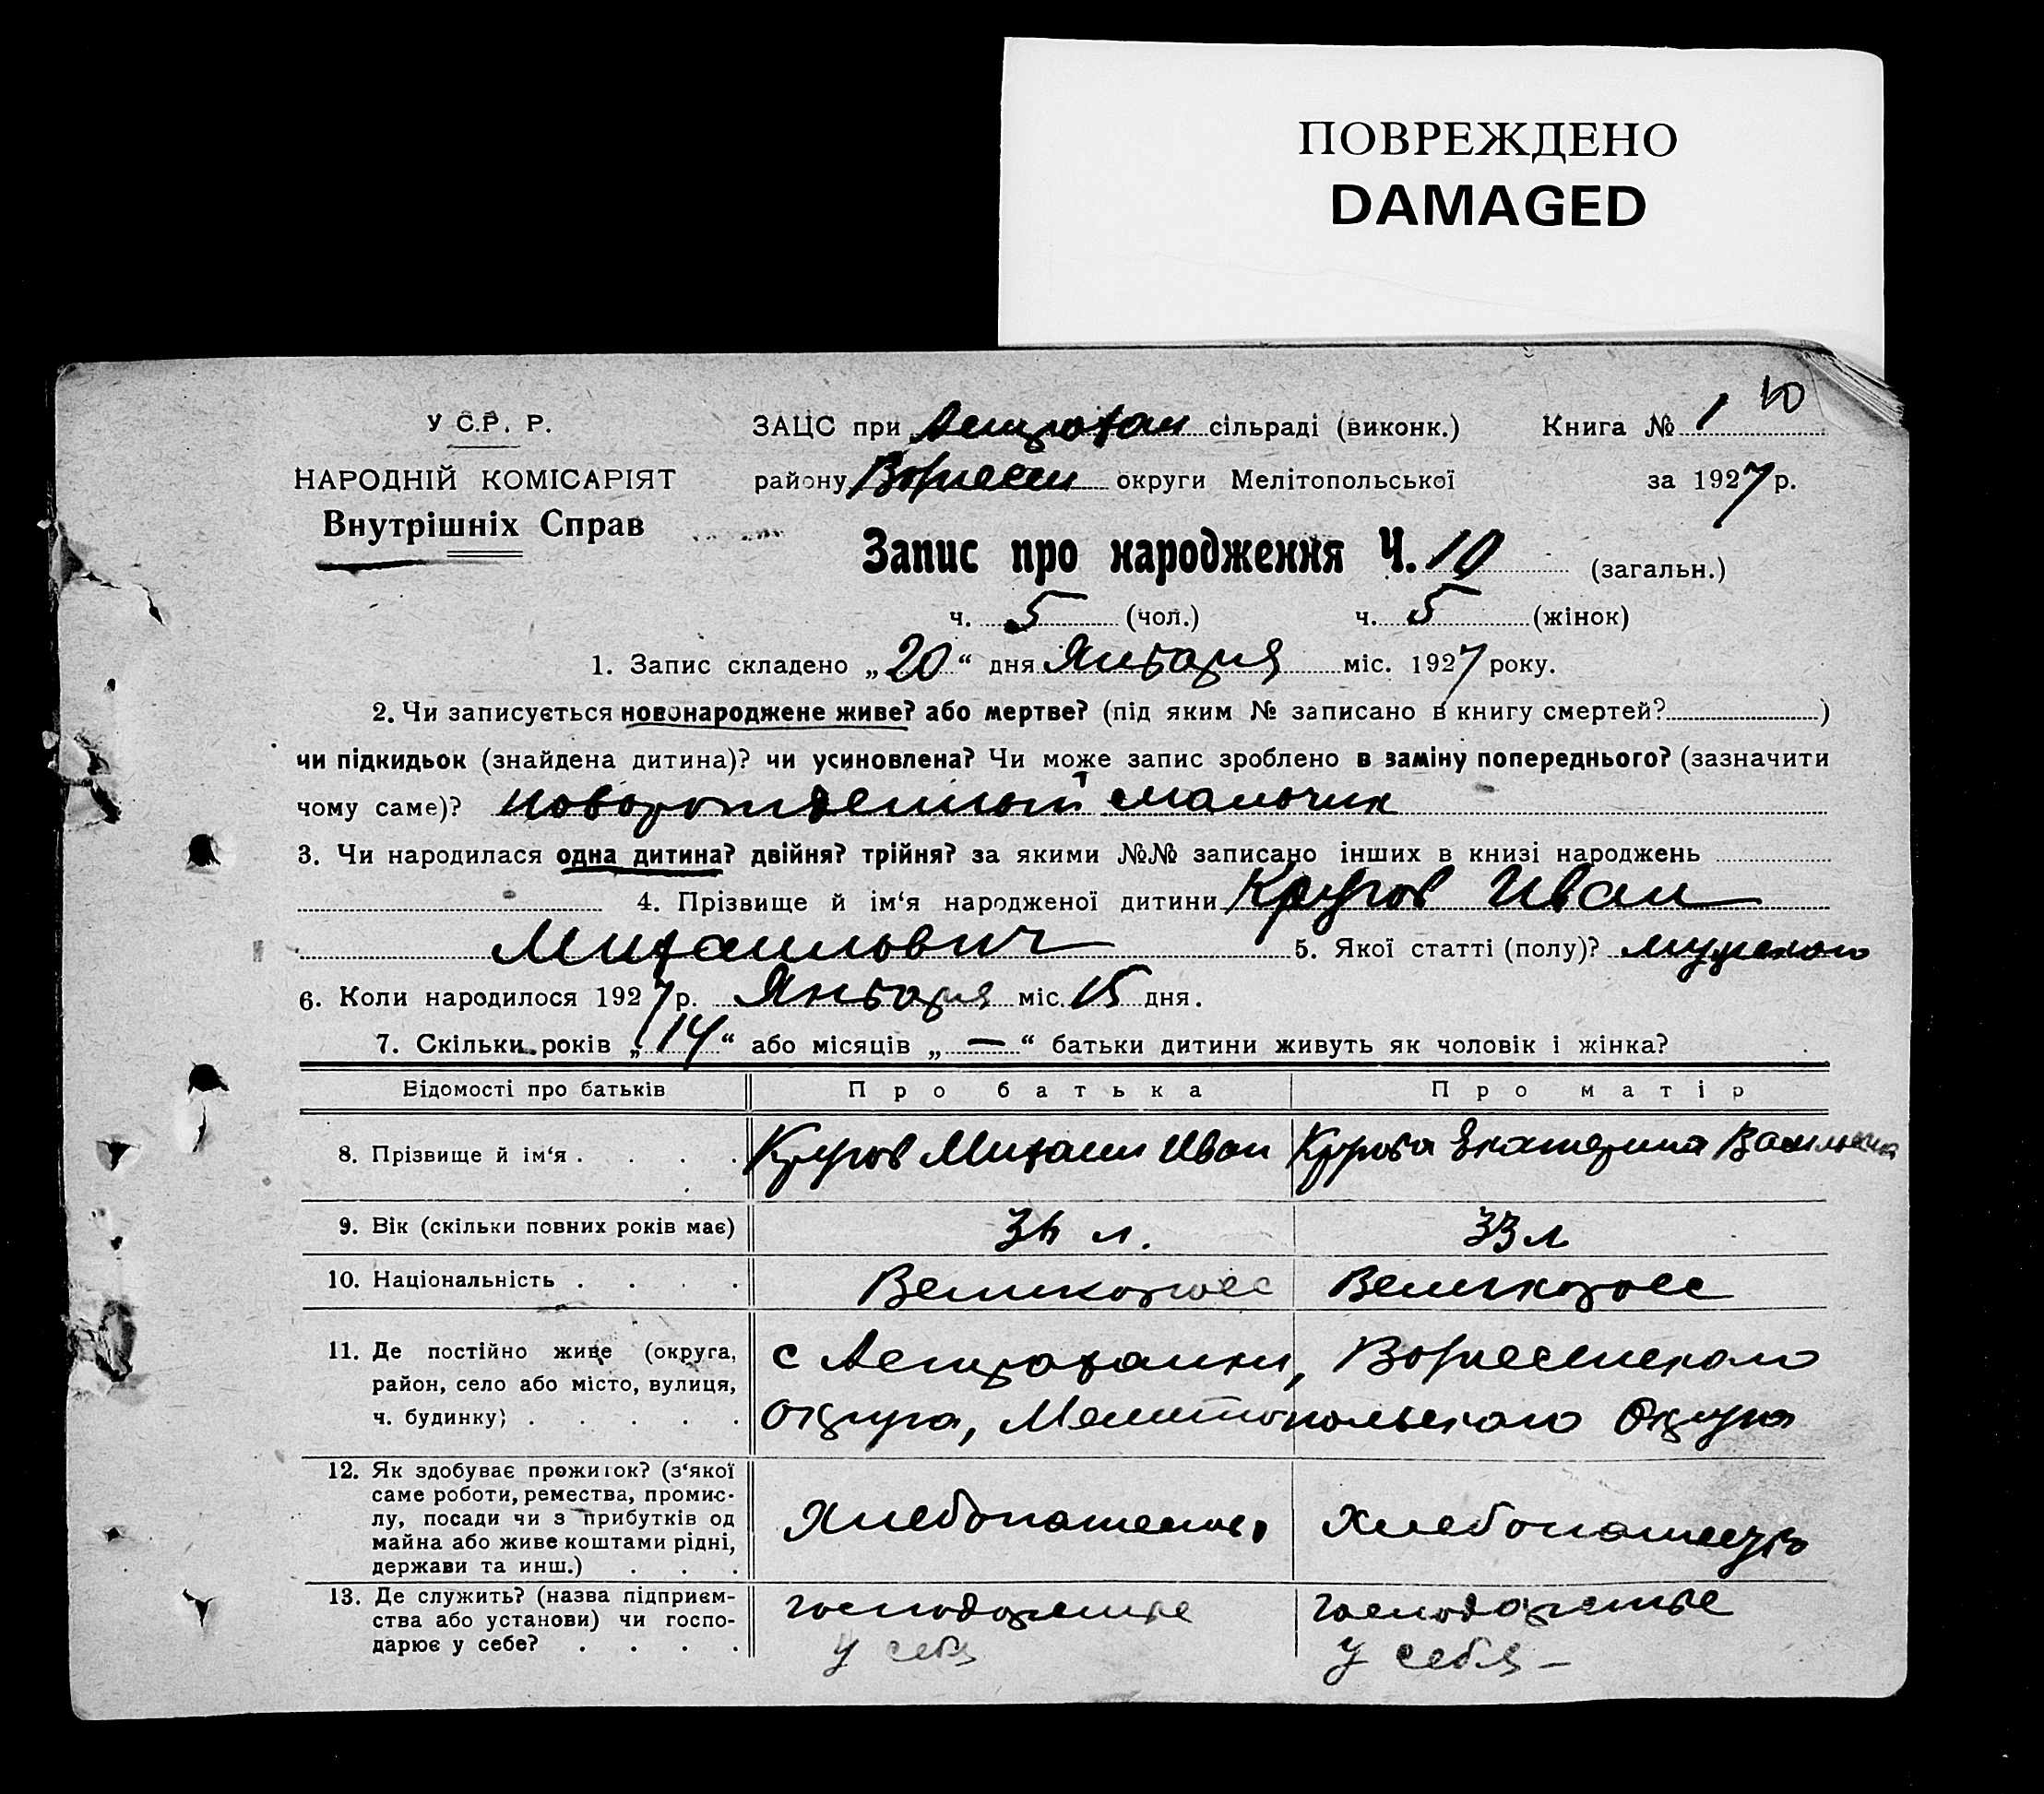 ПОВРЕЖДЕНО
DAMAGED
10
У С.Р. Р.
ЗАЦС при Астрахан сільраді (виконк.)
Книга № 1
НАРОДНІЙ КОМІСАРІЯТ
району округи Мелітопольської
за 1927 р.
Внутрішніх Справ
Запис про народження Ч. 10 (загальн.)
ч. 5 (чол.) ч. 5 (жінок)
1. Запис складено „20“ дня Января міс. 1927 року.
2. Чи записується новонароджене живе? або мертве? (під яким № записано в книгу смертей?)
чи підкидьок (знайдена дитина)? чи усиновлена? Чи може запис зроблено в заміну попереднього? (зазначити
чому саме)? новорожденный мальчик
3. Чи народилася одна дитина? двійня? трійня? за якими №№ записано інших в книзі народжень
4. Прізвище й ім‘я народженої дитини Иван
Михаилович 5. Якої статті (полу)? мужского
6. Коли народилося 1927 р. Января міс. 15 дня.
7. Скільки років „14“ або місяців „—“ батьки дитини живуть як чоловік і жінка?
Відомості про батьків Про батька Про матір
8. Прізвище й ім‘я . . . . Михаил Иван Екатерина
9. Вік (скільки повних років має) л. 33 л
10. Національність . . . . Великоросс Великоросс
11. Де постійно живе (округа, с Астраханки,
район, село або місто, вулиця,
ч. будинку) . . . . . Округа, Мелитопольского Округа
12. Як здобуває прожиток? (з‘якої
саме роботи, ремества, промис-
лу, посади чи з прибутків од
майна або живе коштами рідні,
держави та инш.) . . .
13. Де служить? (назва підприєм-
ства або установи) чи госпо-
дарює у себе? . . . .
у себя у себя –